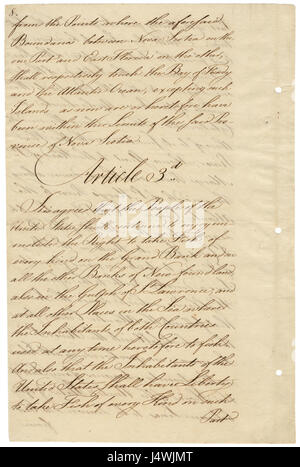 8.
from the Points where the aforesaid
Boundaries between Nova Scotia on the
one Part and East Florida on the other
shall respectively touch the Bay of Fundy
and the Atlantic Ocean, excepting such
Islands as now are or heretofore have
been within the Limits of the said Pro-
vince of Nova Scotia.
Article 3.d
It is agreed that the People of the
United States shall continue to enjoy un-
molested the Right to take Fish of
every kind on the Grand Bank and on
all the other Banks of New-foundland
also in the Gulph of St. Lawrence, and
at all other Places in the Sea where
the Inhabitants of both Countries
used at any time heretofore to fish.
And also that the Inhabitants of the
United States shall have Liberty
to take Fish of every Kind on such
Part
alamy
Image ID: J4WJMT
www.alamy.com